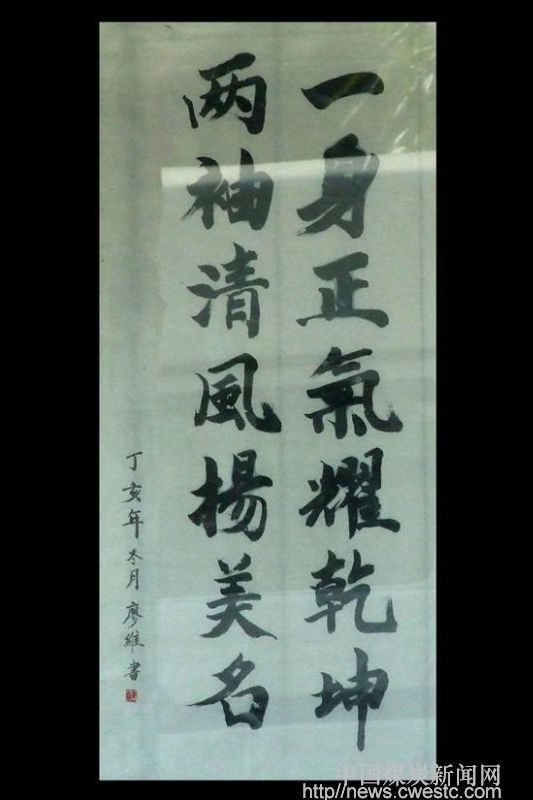 一身正氣耀乾坤
两袖清風揚美名
丁亥年冬月廖維書
中国煤炭新闻网
http://news.cwestc.com